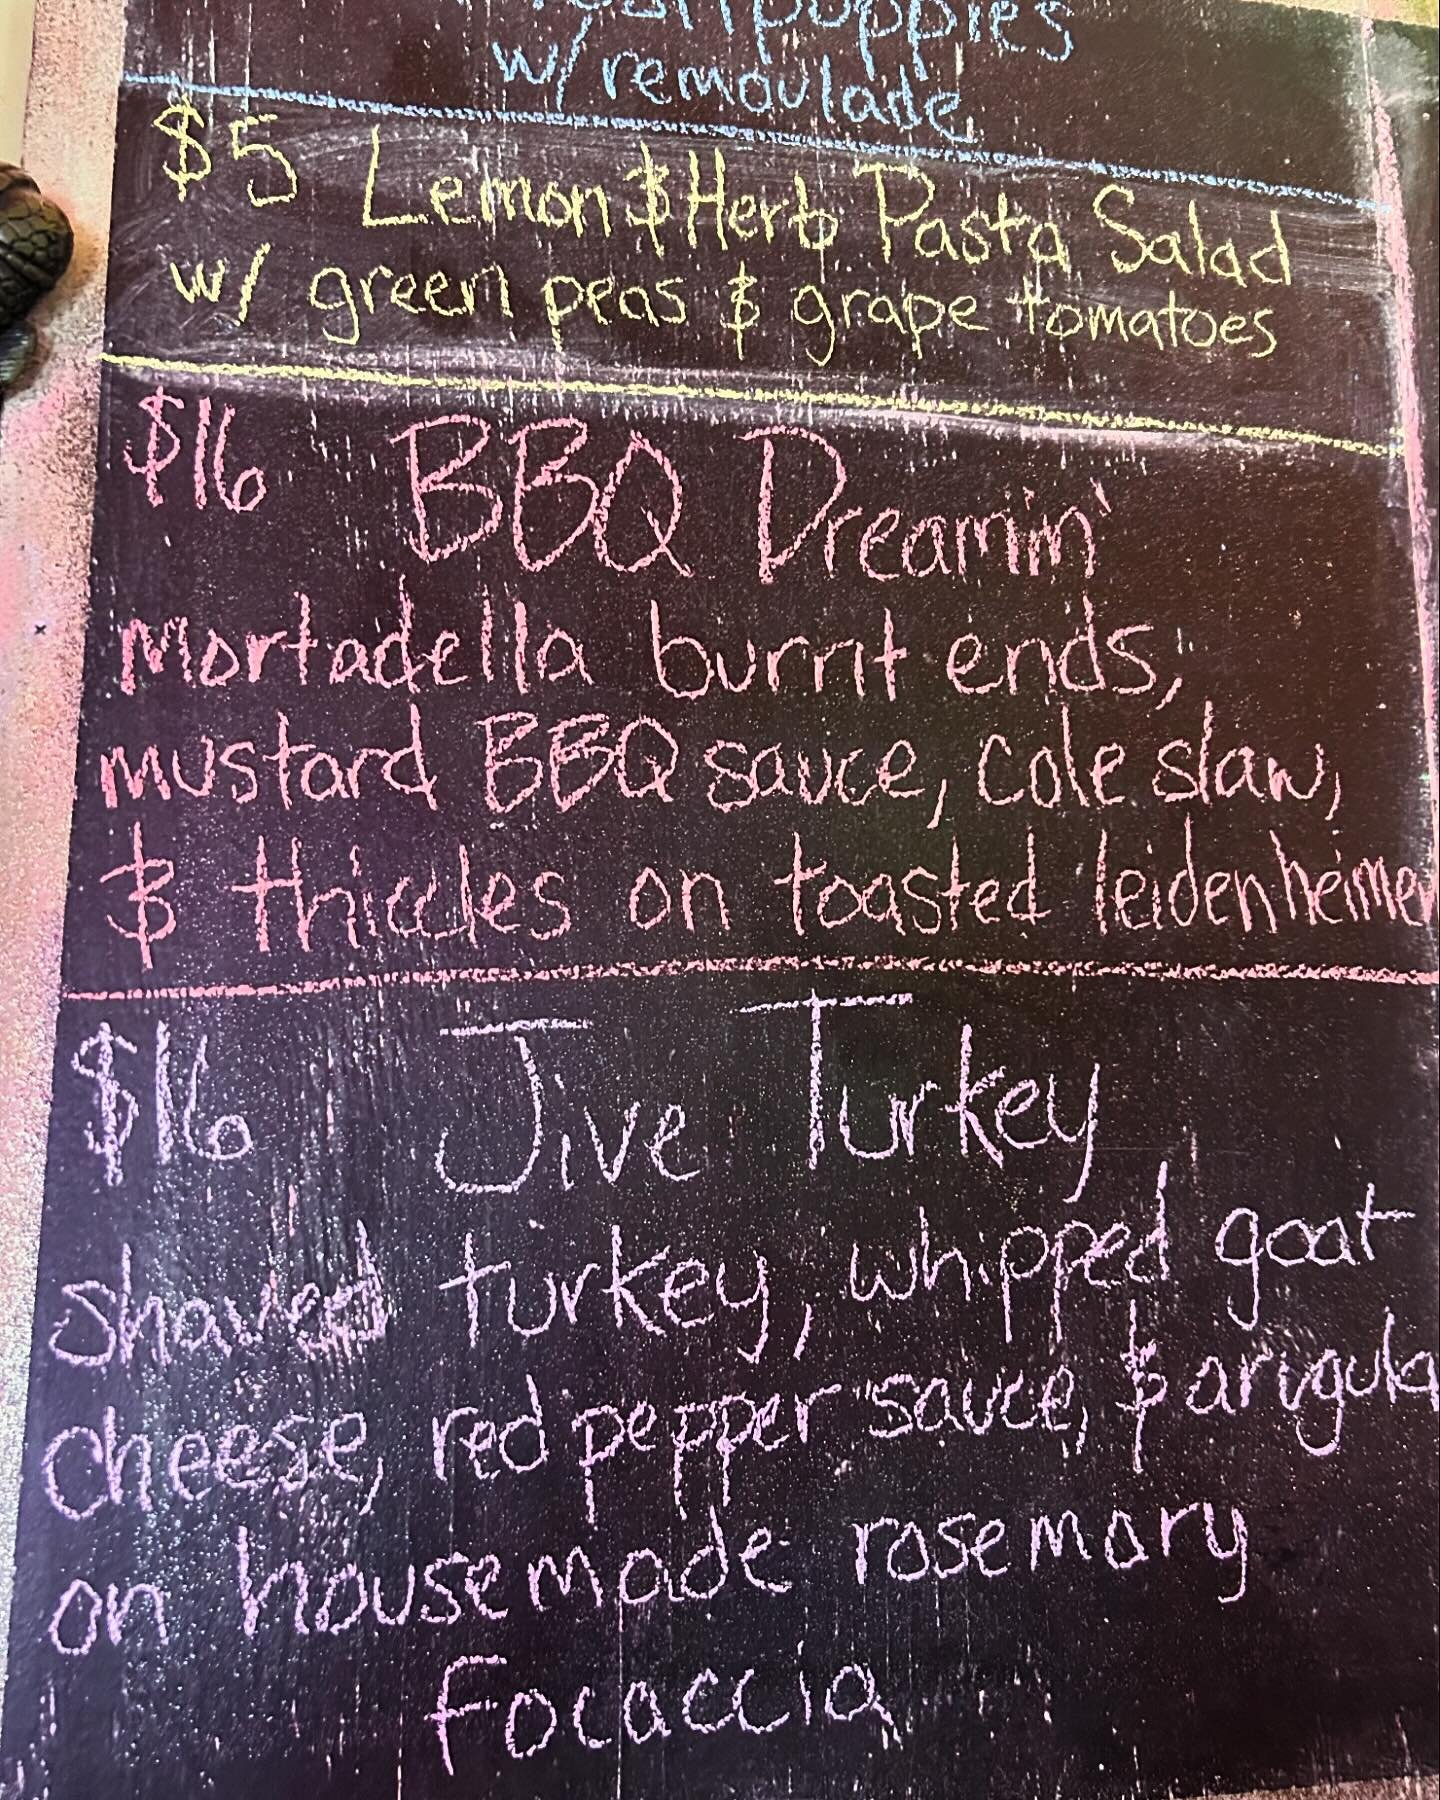 w/ remoulade
$5 Lemon & Herb Pasta Salad
w/ green peas & grape tomatoes
$16 BBQ Dreamin'
mortadella burnt ends,
mustard BBQ sauce, cole slaw,
& thiccles on toasted leidenheimer
$16 Jive Turkey
shaved turkey, whipped goat
cheese, red pepper sauce, & arugula
on housemade rosemary
focaccia